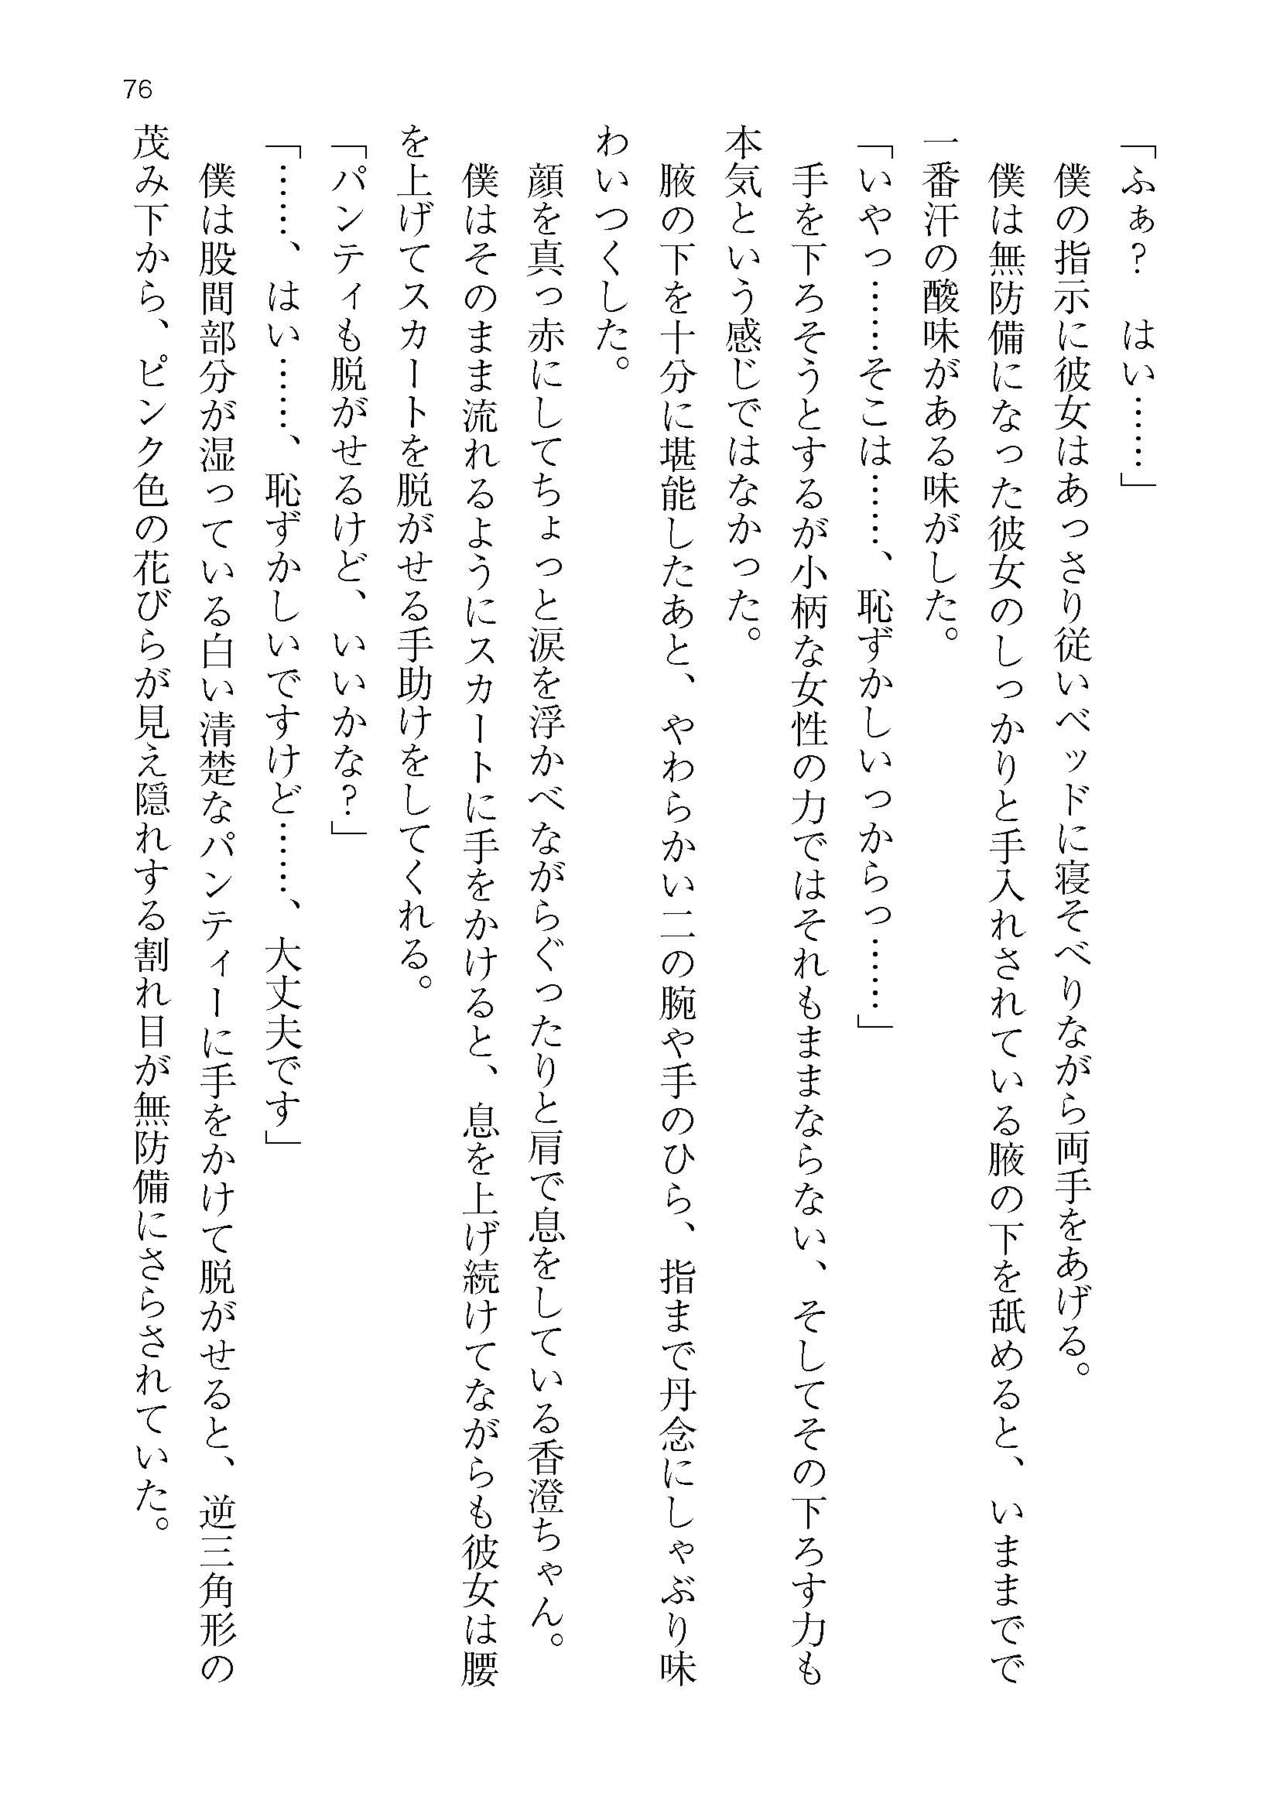 76
「ふぁ？　はい……」
僕の指示に彼女はあっさり従いベッドに寝そべりながら両手をあげる。
僕は無防備になった彼女のしっかりと手入れされている腋の下を舐めると、いままでで
一番汗の酸味がある味がした。
「いやっ……そこは……、恥ずかしいっからっ……」
手を下ろそうとするが小柄な女性の力ではそれもままならない、そしてその下ろす力も
本気という感じではなかった。
腋の下を十分に堪能したあと、やわらかい二の腕や手のひら、指まで丹念にしゃぶり味
わいつくした。
顔を真っ赤にしてちょっと涙を浮かべながらぐったりと肩で息をしている香澄ちゃん。
僕はそのまま流れるようにスカートに手をかけると、息を上げ続けてながらも彼女は腰
を上げてスカートを脱がせる手助けをしてくれる。
「パンティも脱がせるけど、いいかな？」
「……、はい……、恥ずかしいですけど……、大丈夫です」
僕は股間部分が湿っている白い清楚なパンティーに手をかけて脱がせると、逆三角形の
茂み下から、ピンク色の花びらが見え隠れする割れ目が無防備にさらされていた。